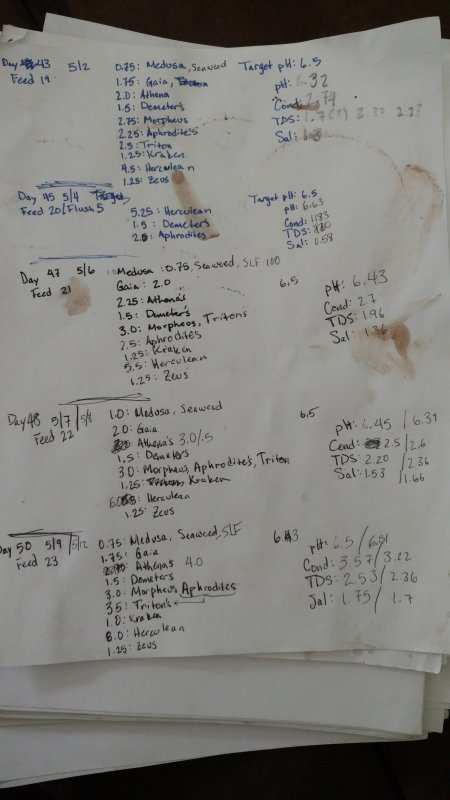 Day 43 5/2 0.75: Medusa, Seaweed Target pH: 6.5
Feed 19 1.75: Gaia, pH: 6.32
2.0: Athena Cond: 2.74
1.5: Demeter's TDS:
2.75: Morpheus Sal:
2.25: Aphrodite's
2.5: Triton
1.25: Kraken
4.5: Herculean
1.25: Zeus
Day 45 5/4 Target pH: 6.5
Feed 20/Flush 5 5.25: Herculean pH: 6.63
1.5: Demeter's Cond: 1183
Aphrodites TDS: 820
Sal: 0.58
Day 47 5/6 Medusa: 0.75, Seaweed, SLF 100 6.5 pH: 6.43
Feed 21 Gaia: 2.0 Cond: 2.7
2.25: Athena's TDS: 1.96
1.5: Demeter's Sal: 1.36
3.0: Morpheus, Triton's
2.5: Aphrodite's
1.25: Kraken
5.5: Herculean
1.25: Zeus
Day 48 5/7 5/8 1.0: Medusa, Seaweed 6.5 pH: 6.45 / 6.39
Feed 22 2.0: Gaia Cond: 2.5 / 2.6
Athena's 3.0 TDS: 2.20 / 2.36
1.5: Demeters Sal: 1.53 / 1.66
3.0: Morpheus, Aphrodite's, Triton
1.25: Kraken
Herculean
1.25: Zeus
Day 50 5/9 5/12 0.75: Medusa, Seaweed, SLF pH: 6.5 / 6.51
Feed 23 1.75: Gaia Cond: 3.57 / 3.22
Athena's 4.0 TDS: 2.53 / 2.36
1.5: Demeters Sal: 1.75 / 1.7
3.0: Morpheus Aphrodites
3.5: Triton's
1.0: Kraken
8.0: Herculean
1.25: Zeus